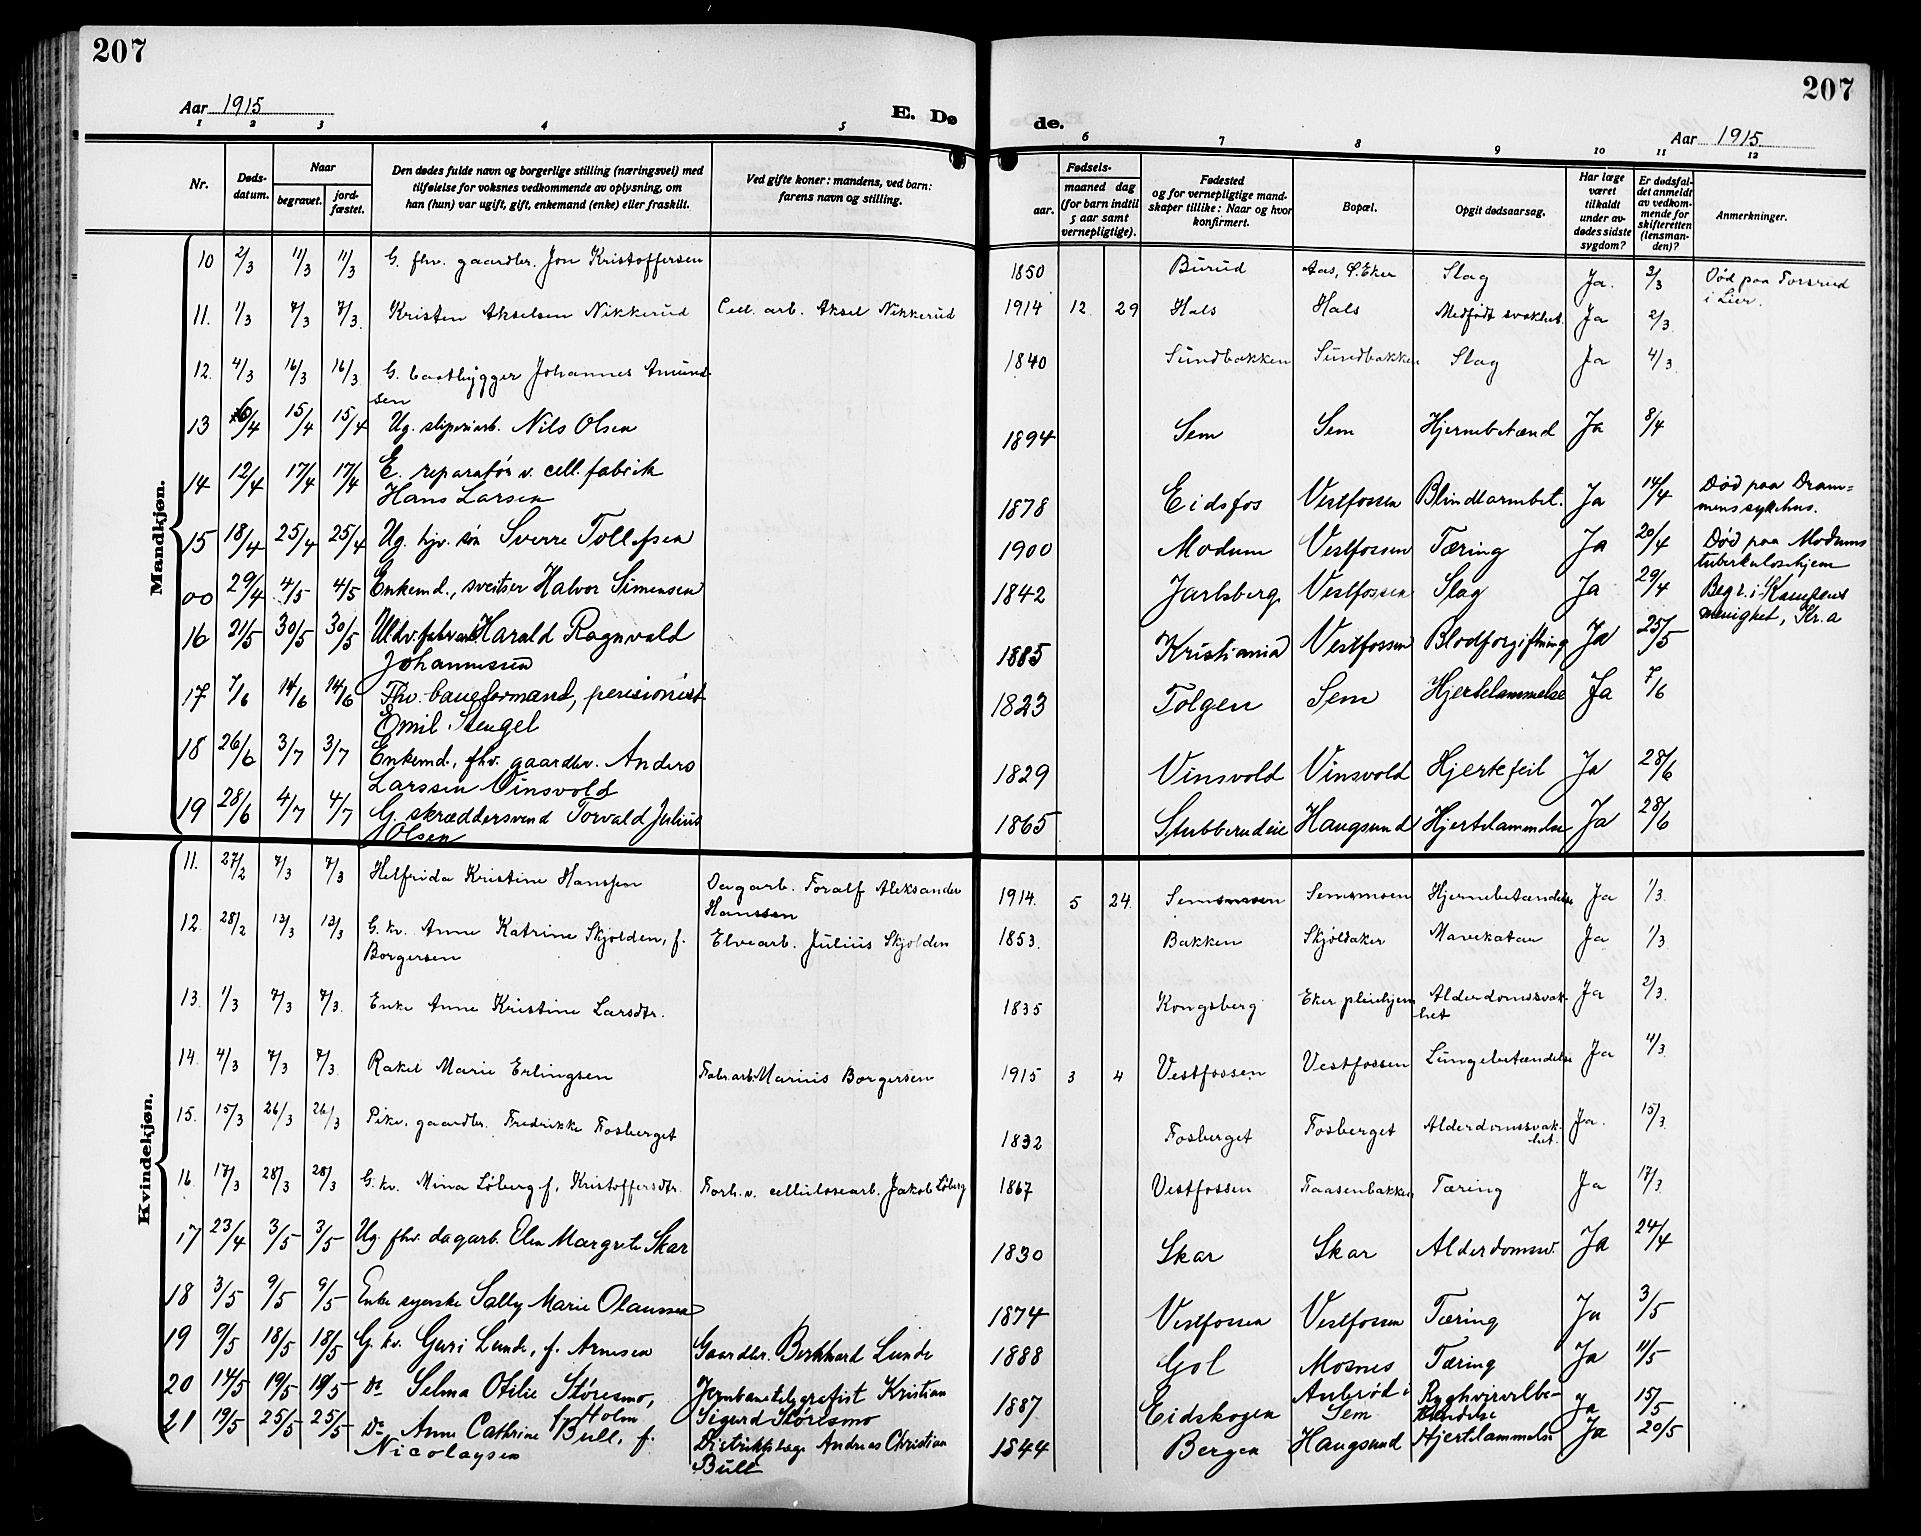 207
207
Aar 1915
E. Dø
de.
Aar 1915
1 2 3 4 5 6 7 8 9 10 11 12
Nr.
Døds-datum.
Naar
begravet.
jord-fæstet.
Den dødes fulde navn og borgerlige stilling (næringsvei) med
tilføielse for voksnes vedkommende av oplysning, om
han (hun) var ugift, gift, enkemand (enke) eller fraskilt.
Ved gifte koner: mandens, ved barn:
farens navn og stilling.
Fødsels-
aar.
maaned dag
(for barn indtil
5 aar samt
vernepligtige).
Fødested
og for vernepligtige mand-
skaper tillike: Naar og hvor
konfirmert.
Bopæl.
Opgit dødsaarsag.
Har læge
været
tilkaldt
under av-
dødes sidste
sygdom?
Er dødsfal-
det anmeldt
av vedkom-
mende for
skifteretten
(lensman-
den)?
Anmerkninger.
Mandkjøn.
10 2/3 11/3 11/3 G. fhv. gaardbr. Jon Kristoffersen 1850 Burud Aas, S. Eker Slag Ja. 3/3 Død paa Forsrud
i Lier.
11. 1/3 7/3 7/3. Kristen Akselsen Nikkerud Cell. arb. Aksel Nikkerud 1914 12. 29 Hals Hals Medfødt svakhet. Ja 2/3.
12. 4/3 16/3 16/3. G. baatbygger Johannes Amund-
sen 1840 Sundbakken Sundbakken Slag Ja 4/3.
13 6/4 15/4 15/4 Ug. sliperiarb. Nils Olsen 1894 Sem Sem Hjernebetænd Ja 8/4
14 12/4 17/4 17/4 E. reparatør v. cell. fabrik
Hans Larsen 1878 Eidsfos Vestfossen Blindtarmbet. Ja 14/4 Død paa Dram=
mens sykehus.
15 18/4 25/4 25/4 Ug. hjv. søn Sverre Tollefsen 1900 Modum Vestfossen Tæring Ja 20/4 Død paa Modums
tuberkulosehjem
00 29/4 4/5 4/5 Enkemd., sveitser Halvor Simensen 1842 Jarlsberg Vestfossen Slag Ja 29/4 Begr. i Kampens
menighet, Kr.a
16 21/5 30/5 30/5 Harald Ragnvald
Johannessen 1885 Kristiania Vestfossen Blodforgiftning Ja 25/5
17 7/6 14/6 14/6 Fhv. baneformand, pensionist
Emil Stengel 1823 Tolgen Sem Hjertelammelse Ja 7/6
18 26/6 3/7 3/7 Enkemd., fhv. gaardbr. Anders
Larssen Vinsvold 1829 Vinsvold Vinsvold Hjertefeil Ja 28/6
19 28/6 4/7 4/7 G. skræddersvend Torvald Julius
Olsen 1865 Stubberudeie Haugsund Hjertelammelse Ja 28/6
Kvindekjøn.
11. 27/2 7/3 7/3 Helfrida Kristine Hanssen Dagarb. Toralf Aleksander
Hanssen 1914. 5 24. Semsmoen Semsmoen Hjernebetændelse Ja 1/3.
12. 28/2 13/3 13/3 G. kv. Anne Katrine Skjolden, f.
Borgersen Elvearb. Julius Skjolden 1853. Bakken Skjoldaker Mavekatar Ja 1/3.
13. 1/3 7/3 7/3. Enke Anne Kristine Larsdtr. 1835 Kongsberg Eker pleiehjem Alderdomssvak-
het Ja 2/3.
14. 4/3 7/3 7/3. Rakel Marie Erlingsen Fabr.arb. Marius Borgersen 1915 3 4 Vestfossen Vestfossen Lungebetændelse Ja 4/3.
15. 15/3 26/3 26/3 Pike, gaardbr. Fredrikke Fosberget 1832 Fosberget Fosberget Alderdomssvak-
het. Ja. 15/3.
16. 17/3 28/3 28/3 G. kv. Mina Løberg f. Kristoffersdtr. Forh.v. cellulosearb. Jakob Løberg 1867 Vestfossen Faasenbakken Tæring Ja 17/3.
17 23/4 3/5 3/5 Ug. fhv. dagarb. Elen Margrete Skar 1830 Skar Skar Alderdomssv. Ja 24/4
18 3/5 9/5 9/5 Enke syerske Sally Marie Olaussen 1874 Vestfossen Vestfossen Tæring Ja 3/5
19 9/5 18/5 18/5 G. kv. Guri Lunde, f. Arnesen Gaardbr. Berkhard Lunde 1888 Gol Mosnes Tæring Ja 11/5
20 14/5 19/5 19/5 Do Selma Otilie Støresmo,
f. Holm Jernbanetelegrafist Kristian
Sigurd Støresmo 1887 Eidskogen Anbrød i
Sem Ryghvirvelbe-
tændelse Ja 15/5
21 19/5 25/5 25/5 Do Anne Cathrine Bull, f.
Nicolaysen Distriktslæge Andreas Christian
Bull 1844 Bergen Haugsund Hjertelammelse Ja 20/5